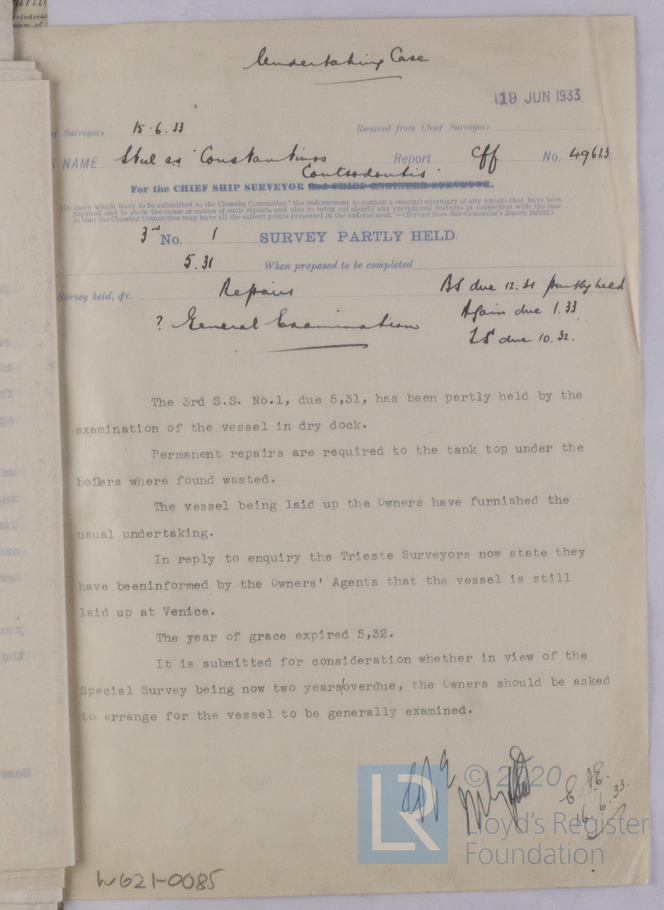 Undertaking Case
19 JUN 1933
of Surveyors 15.6.33 Received from Chief Surveyors
NAME Steel ss "Constantinos Report Off No. 49613
For the CHIEF SHIP SURVEYOR and CHIEF ENGINEER SURVEYOR.
In cases which have to be submitted to the Classing Committee "the endorsement to contain a succinct summary of any repairs that have been
required and to show the cause or causes of such repairs, and also to bring out clearly any exceptional features in connection with the case
so that the Classing Committee may have all the salient points presented in the endorsement."—(Extract from Sub-Committee's Report,
3rd No. 1 SURVEY PARTLY HELD.
5.31 When proposed to be completed
Survey held, &c. Repairs BS due 12.31 partly held
Again due 1.33
? General Examination
TS due 10.32.
The 3rd S.S. No.1, due 5,31, has been partly held by the
examination of the vessel in dry dock.
Permanent repairs are required to the tank top under the
boilers where found wasted.
The vessel being laid up the Owners have furnished the
usual undertaking.
In reply to enquiry the Trieste Surveyors now state they
have beeninformed by the Owners' Agents that the vessel is still
laid up at Venice.
The year of grace expired 5,32.
It is submitted for consideration whether in view of the
Special Survey being now two years overdue, the Owners should be asked
to arrange for the vessel to be generally examined.
LR
© 2020
Lloyd's Register
Foundation
W621-0085